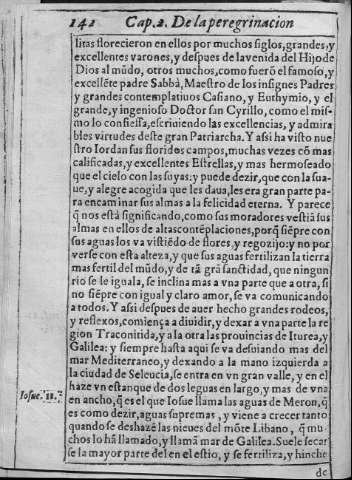 142 Cap. 2. De la peregrinacion
litas florecieron en ellos por muchos siglos, grandes, y
excellentes varones, y despues de la venida del Hijo de
Dios al mũdo, otros muchos, como fuerõ el famoso, y
excellẽte padre Sabbà, Maestro de los insignes Padres
y grandes contemplatiuos Casiano, y Euthymio, y el
grande, y ingenioso Doctor san Cyrillo, como el mis-
mo lo confiessa, escriuiendo las excellencias, y admira
bles virtudes deste gran Patriarcha. Y assi ha visto nue
stro Iordan sus floridos campos, muchas vezes cõ mas
calificadas, y excellentes Estrellas, y mas hermoseado
que el cielo con las suyas: y puede dezir, que con la sua-
ue, y alegre acogida que les daua, les era gran parte pa-
ra encaminar sus almas a la felicidad eterna. Y parece
q̃ nos està significando, como sus moradores vestiã sus
almas en ellos de altas contẽplaciones, porq̃ siẽpre con
sus aguas los va vistiẽdo de flores, y regozijo: y no por
verse con esta alteza, y que sus aguas fertilizan la tierra
mas fertil del mũdo, y de tã grã sanctidad, que ningun
rio se le iguala, se inclina mas a vna parte que a otra, si
no siẽpre con igual y claro amor, se va comunicando
a todos. Y assi despues de auer hecho grandes rodeos,
y reflexos, comiença a diuidir, y dexar a vna parte la re
gion Traconitida, y a la otra las prouincias de Iturea, y
Galilea: y siempre hasta aqui se va desuiando mas del
mar Mediterraneo, y dexando a la mano izquierda a
la ciudad de Seleucia, se entra en vn gran valle, y en el
haze vn estanque de dos leguas en largo, y mas de vna
Iosue. 11.
en ancho, q̃ es el que Iosue llama las aguas de Meron, q̃
es como dezir, aguas supremas, y viene a crecer tanto
quando se deshazẽ las nieues del mõte Libano, q̃ mu-
chos lo hã llamado, y llamã mar de Galilea. Suele secar
se la mayor parte del en el estio, y se fertiliza, y hinche
de